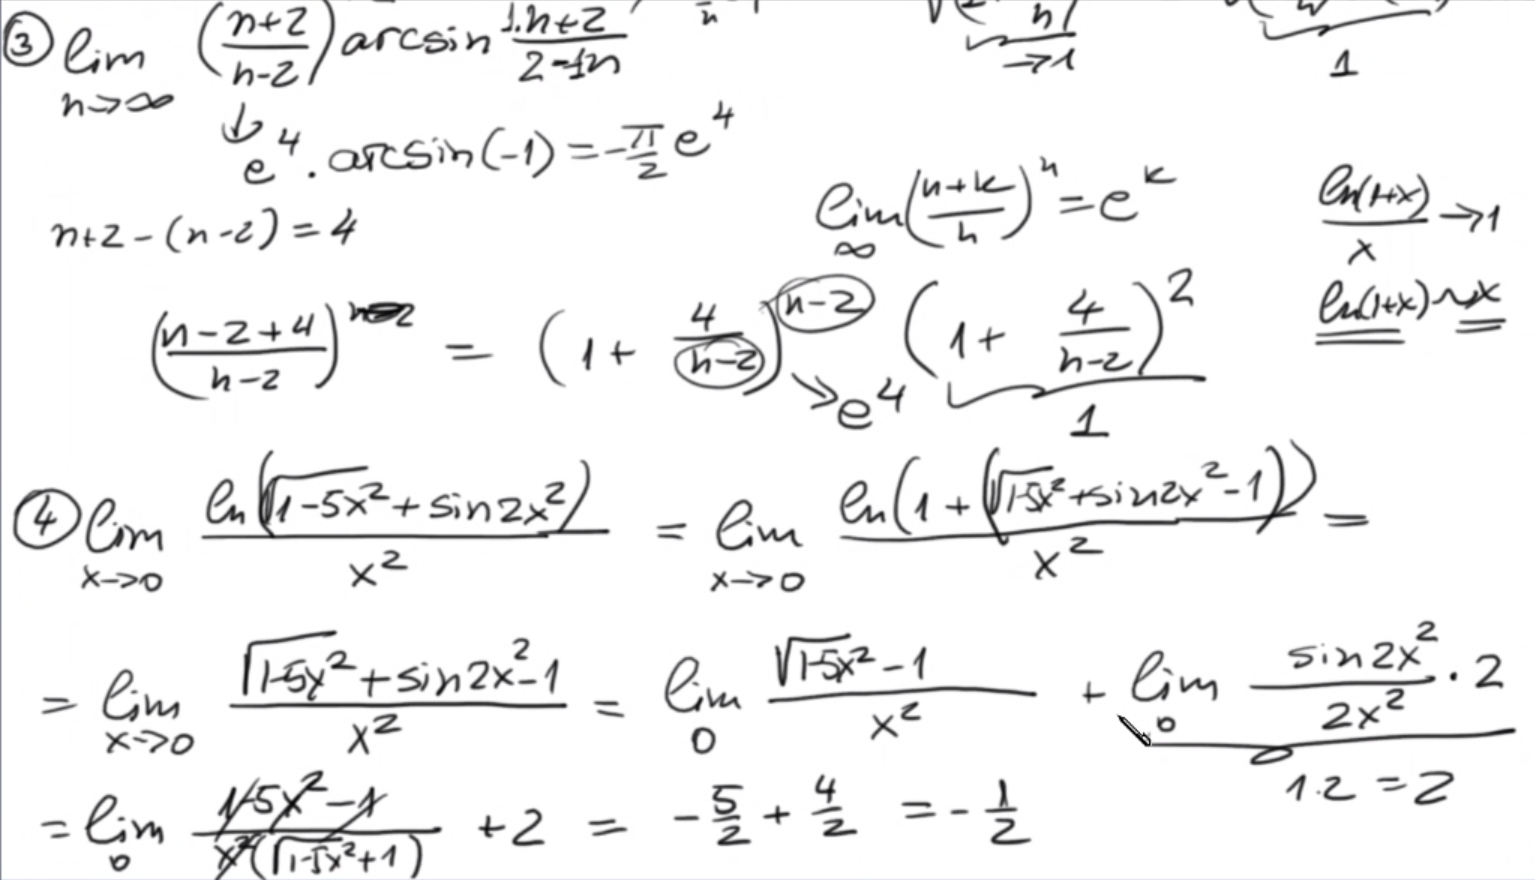 ③ lim n→∞ (n+2/n-2) arcsin 1·n+2/2-1n
→1
1
↓ e^4 · arcsin(-1) = -π/2 e^4
n+2-(n-2) = 4
lim ∞ (n+k/n)^n = e^k
ln(1+x)/x → 1
ln(1+x) ~ x
(n-2+4/n-2) = (1 + 4/n-2)^n-2 (1 + 4/n-2)^2
→ e^4
1
④ lim x→0 ln(√1-5x² + sin2x²)/x² = lim x→0 ln(1 + (√1-5x² + sin2x² -1))/x² =
= lim x→0 √1-5x² + sin2x² -1/x² = lim 0 √1-5x² -1/x² + lim 0 sin2x²/2x² · 2
1·2 = 2
= lim 0 1-5x² -1/x²(√1-5x² +1) +2 = -5/2 + 4/2 = -1/2